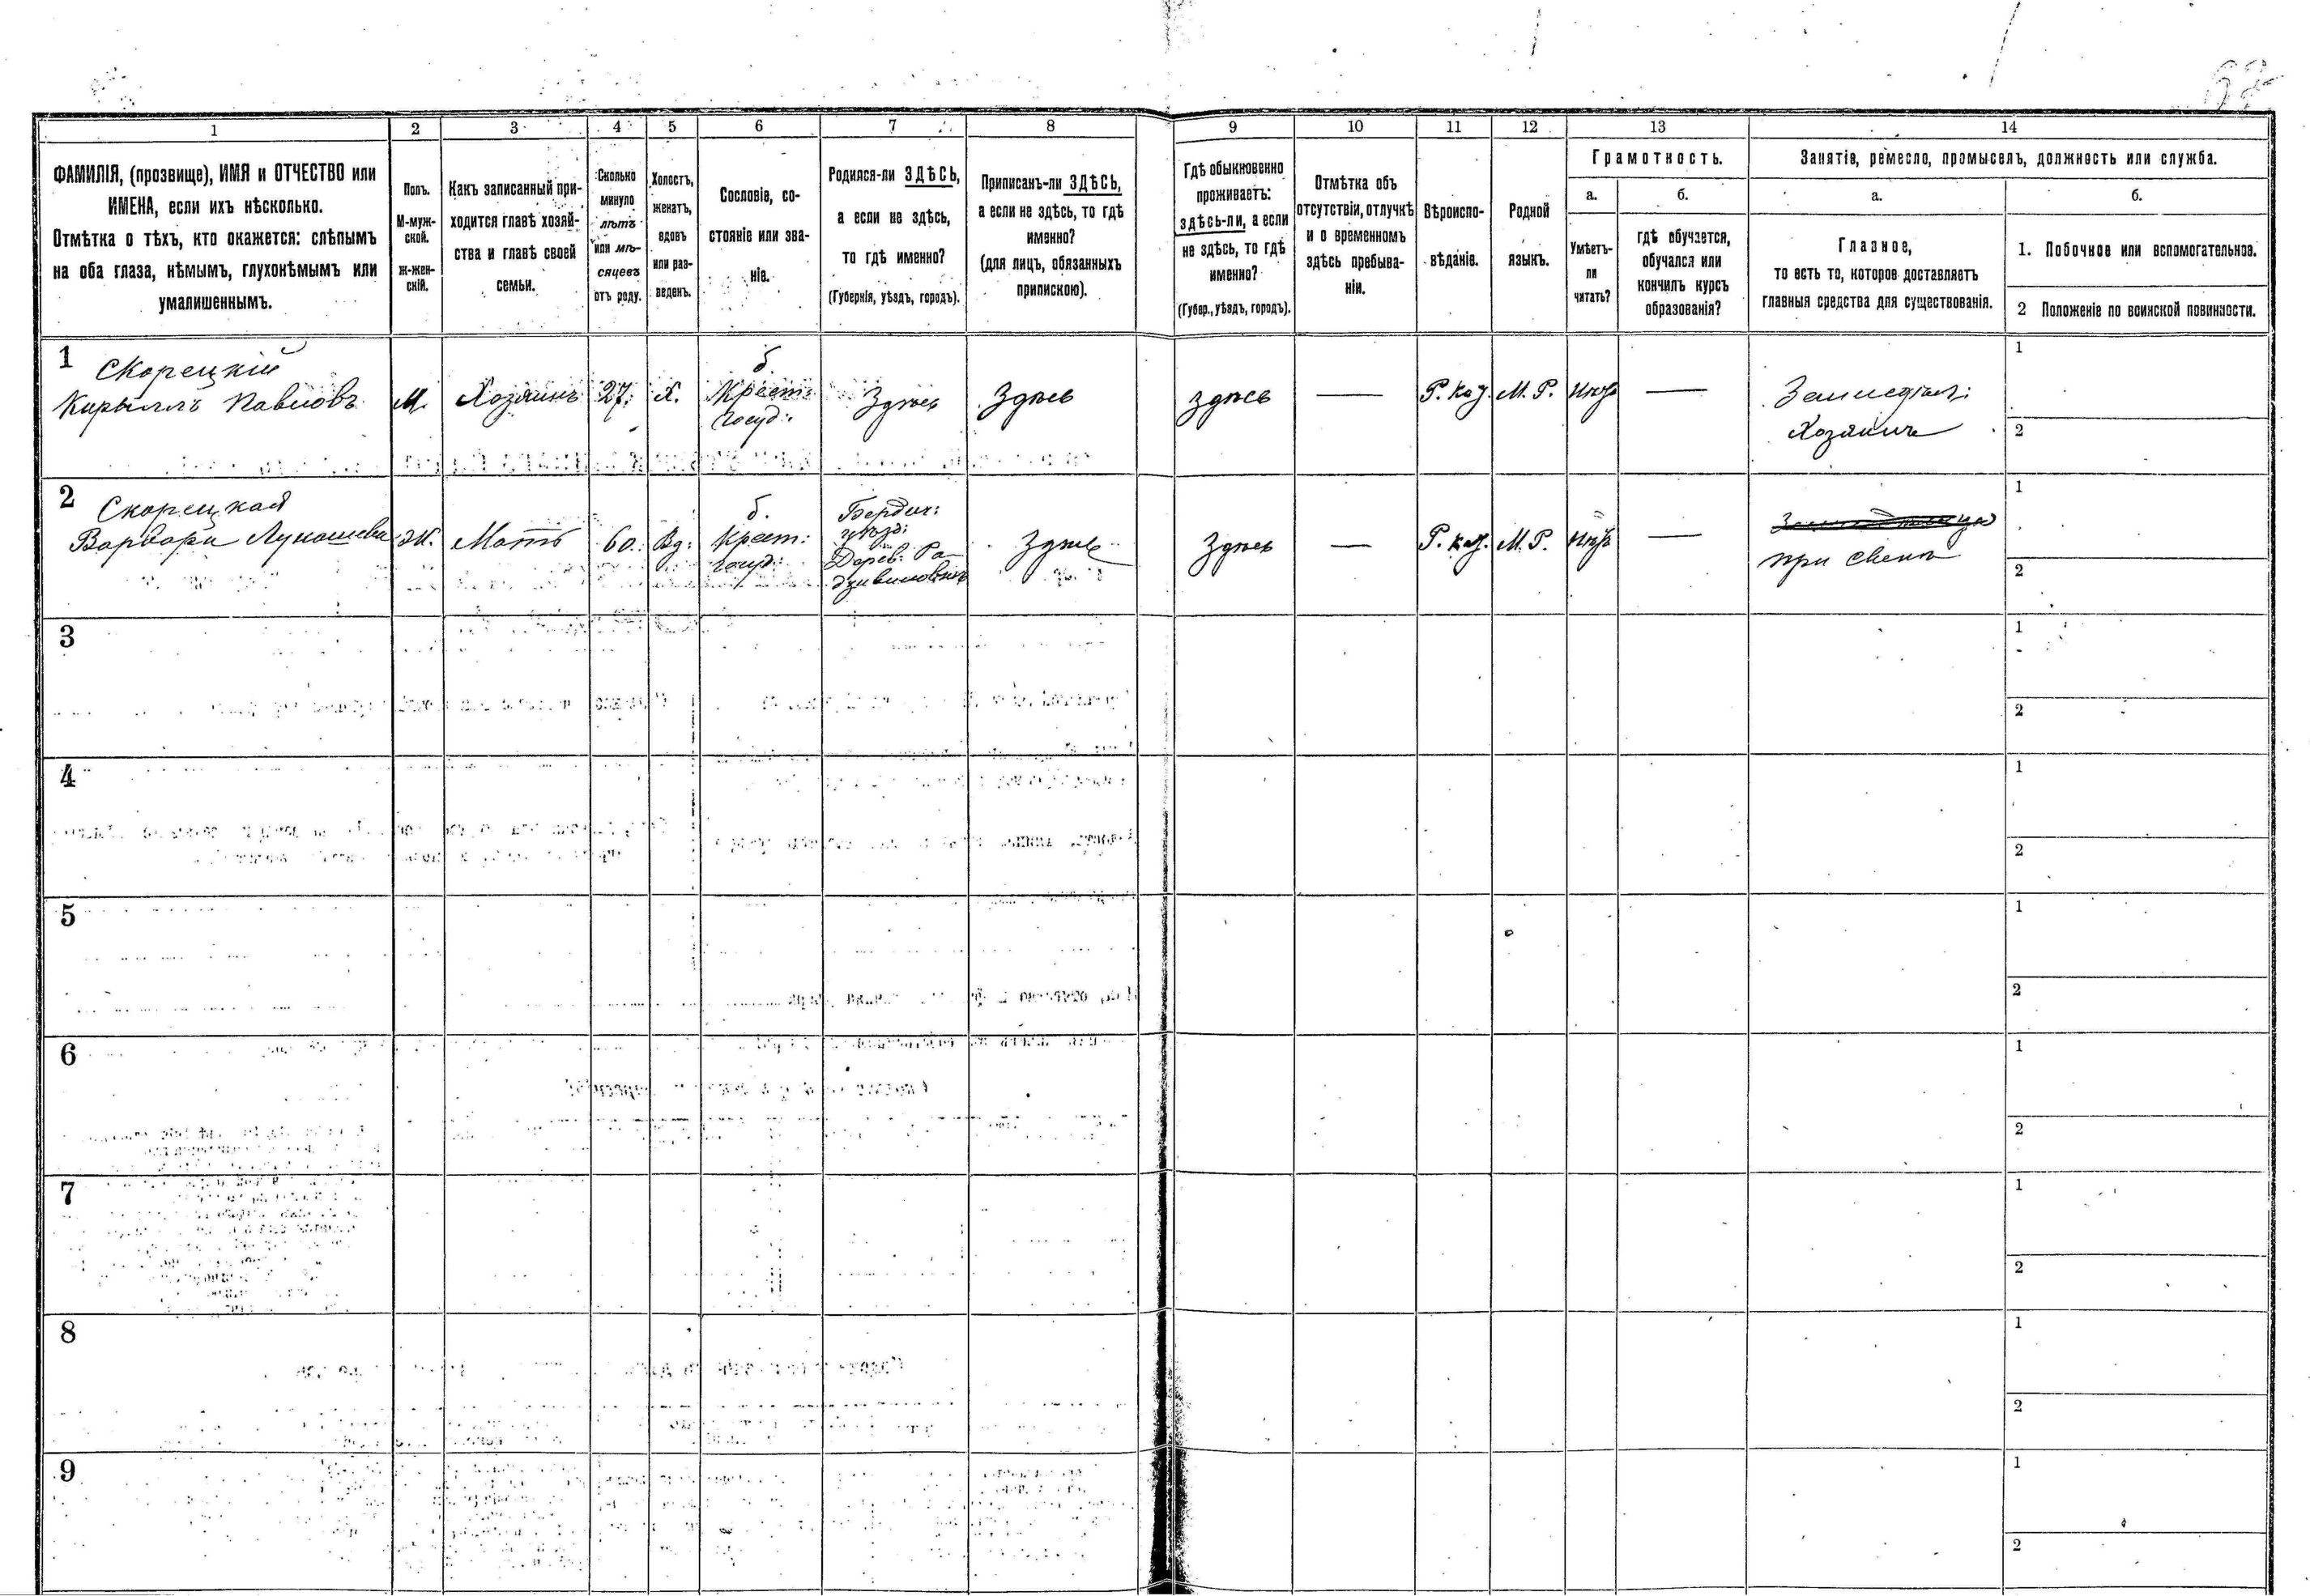 1 2 3 4 5 6 7 8 9 10 11 12 13 14
ФАМИЛІЯ, (прозвище), ИМЯ и ОТЧЕСТВО или
ИМЕНА, если ихъ нѣсколько.
Отмѣтка о тѣхъ, кто окажется: слѣпымъ
на оба глаза, нѣмымъ, глухонѣмымъ или
умалишеннымъ.
Полъ.
М-муж-
ской.
Ж-жен-
скій.
Какъ записанный при-
ходится главѣ хозяй-
ства и главѣ своей
семьи.
Сколько
минуло
лѣтъ
или мѣ-
сяцевъ
отъ роду.
Холостъ,
женатъ,
вдовъ
или раз-
веденъ.
Сословіе, со-
стояніе или зва-
ніе.
Родился-ли ЗДѢСЬ,
а если не здѣсь,
то гдѣ именно?
(Губернія, уѣздъ, городъ).
Приписанъ-ли ЗДѢСЬ,
а если не здѣсь, то гдѣ
именно?
(для лицъ, обязанныхъ
припискою).
Гдѣ обыкновенно
проживаетъ:
здѣсь-ли, а если
не здѣсь, то гдѣ
именно?
(Губер., уѣздъ, городъ).
Отмѣтка объ
отсутствіи, отлучкѣ
и о временномъ
здѣсь пребыва-
ніи.
Вѣроиспо-
вѣданіе.
Родной
языкъ.
Грамотность.
а.
Умѣетъ-
ли
читать?
б.
гдѣ обучается,
обучался или
кончилъ курсъ
образованія?
Занятіе, ремесло, промыселъ, должность или служба.
а.
Главное,
то есть то, которое доставляетъ
главныя средства для существованія.
б.
1. Побочное или вспомогательное.
2 Положеніе по воинской повинности.
1
Скорецкій
Кирыллъ Павловъ
М.
Хозяинъ
27.
Х.
б
Крест:
госуд:
Здѣсь
Здѣсь
здѣсь
—
Р. Каѳ.
М. Р.
—
Земледѣл:
Хозяинъ
1
2
2
Скорецкая
Варвара Лукашева
Ж.
Мать
60.
Вд:
б.
Крест:
госуд:
Бердич:
уѣзд:
Дерев: Ра-
Здѣсь
Здѣсь
—
Р. Каѳ.
М. Р.
—
при сынѣ
1
2
3
1
2
4
1
2
5
1
2
6
1
2
7
1
2
8
1
2
9
1
2